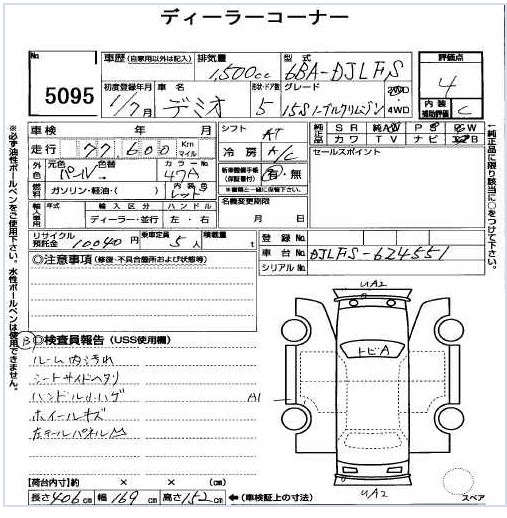 ディーラーコーナー
No 5095
車歴 (自家用以外は記入) 排気量 1,500cc 型式 6BA-DJLFS 評価点 4
初度登録年月 1/7月 車名 デミオ 形状・ドア数 5 グレード 15S ノーブルクリムゾン 4WD 内装補助評価 C
車検 年 月 シフト AT 純正品 SR 純AW PS PW
走行 77,600 Km マイル 冷房 A/C カワ TV ナビ
セールスポイント
外色 元色 パール 色替 カラーNo 47A 新車整備手帳(保証書付) 有・無
※書類と一緒に保管下さい。
燃料 ガソリン・軽油・( ) 内装色 レッド 名義変更期限
月 日
輸入車用 年 輸入区分 ハンドル
ディーラー・並行 左・右
リサイクル預託金 10040円 乗車定員 5人 積載量 t 登録No
車台No DJLFS-624551
シリアルNo
◎注意事項 (修復・不具合箇所および状態等)
B ◎検査員報告 (USS使用欄)
ルーム内汚れ
シートサイドヘタリ
ハンドル小ハゲ
ホイールキズ
左テールパネル凹
UA2
トビA
A1
UA2
スペア
【荷台内寸】 cm × cm × cm
長さ 406cm 幅 169cm 高さ 152cm ←(車検証上の寸法)
※必ず油性ボールペンをご使用下さい。水性ボールペンは使用できません。
↑純正品に限り該当に○をつけて下さい。